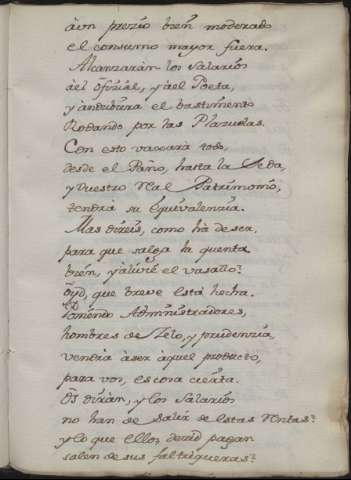 àvn prezio bien moderado
el consumo mayor fuera.
Alcanzaràn los Salarios
àel ofizial, y àel Poeta,
y àndubiera el bastimento
Rodando por las Plazuelas.
Con esto vaxarà todo,
desde el Paño, hasta la Seda,
y Vuestro Real Patrimonio,
tendrà su equivalenzia.
Mas direis, como hà de ser,
para que salga la quenta
bien, y àlivie el vasallo?
Oyd, que breve està hecha.
Poniendo Administradores,
hombres de Zelo, y prudenzia,
vendrà àser àquel producto,
para vos, es cosa cierta.
Os diràn, y los Salarios
no han de Salir de estas Rentas?
y lo que ellos pagan
salen de sus faltrigueras?